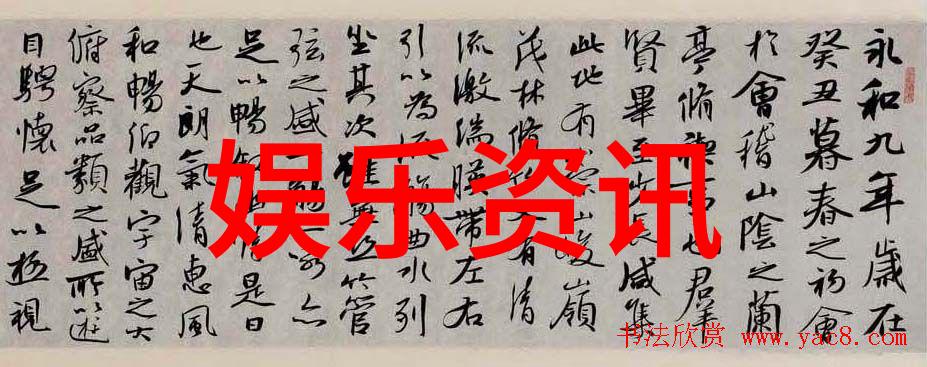 永和九年歲在
癸丑暮春之初會
於會稽山陰之蘭
亭脩禊事也群
賢畢至少長咸集
此地有崇山峻嶺
茂林脩竹又有清
流激湍暎帶左右
引以為流觴曲水列
坐其次雖無絲竹管
弦之盛一觴一詠亦
足以暢情是日
也天朗氣清惠風
和暢仰觀宇宙之大
俯察品類之盛所以遊
目騁懷足以極視
娱乐资讯
书法欣赏 www.yac8.com